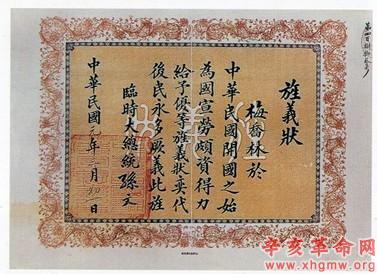 旌義狀
梅喬林於
中華民國開國之始
為國宣勞頗資得力
給予優等旌義狀奕代
後民永多厥義此旌
臨時大總統孫文
中華民國元年三月日
辛亥革命网
www.xhgmw.org